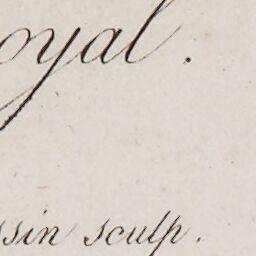 oyal.
ssin sculp.